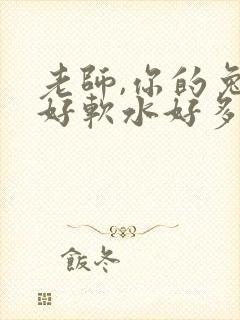 老師,你的兔
好軟水好多
飯冬